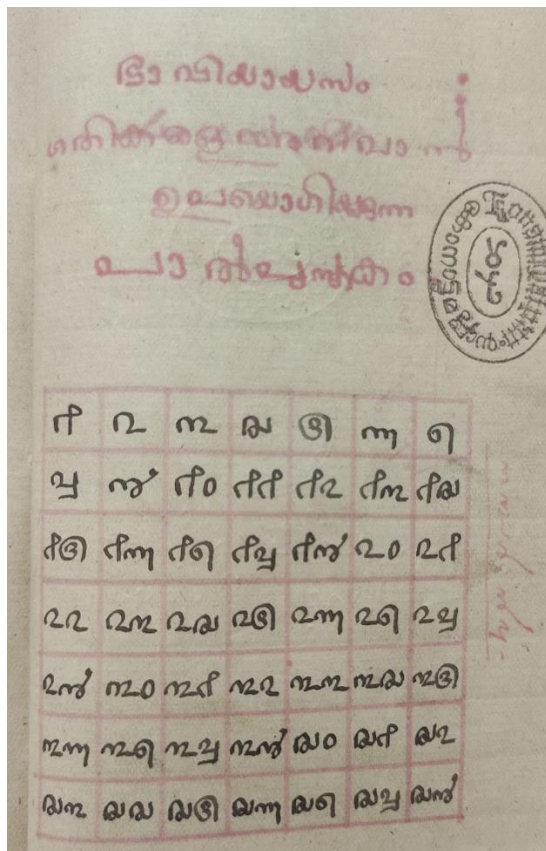 ഭാവിയായസം
ഗതിക്കളെ അറിവാൻ
ഉപയൊഗിക്കുന്ന
൧ ൨ ൩ ൪ ൫ ൬ ൭
൮ ൯ ൧൦ ൧൧ ൧൨ ൧൩ ൧൪
൧൫ ൧൬ ൧൭ ൧൮ ൧൯ ൨൦ ൨൧
൨൨ ൨൩ ൨൪ ൨൫ ൨൬ ൨൭ ൨൮
൨൯ ൩൦ ൩൧ ൩൨ ൩൩ ൩൪ ൩൫
൩൬ ൩൭ ൩൮ ൩൯ ൪൦ ൪൧ ൪൨
൪൩ ൪൪ ൪൫ ൪൬ ൪൭ ൪൮ ൪൯